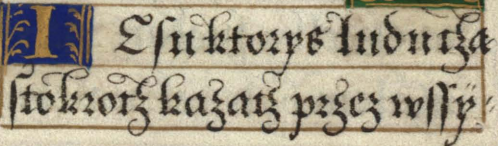 I Esu ktorys ludu tzÿ
stokrotz kazatz przez wssÿ-